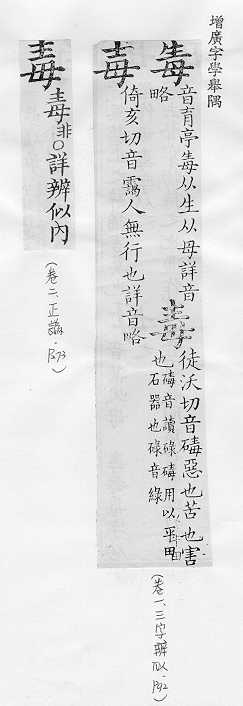 增廣字學舉隅
毒音育亭毒从生从母詳音
略
毒徒沃切音碡惡也苦也害
也碡音讀碌碡用以平田
石器也碌音綠
毐倚亥切音靄人無行也詳音略
(卷一、三字辨似. P92)
毒毐非○詳辨似內
(卷二、正譌. P73)